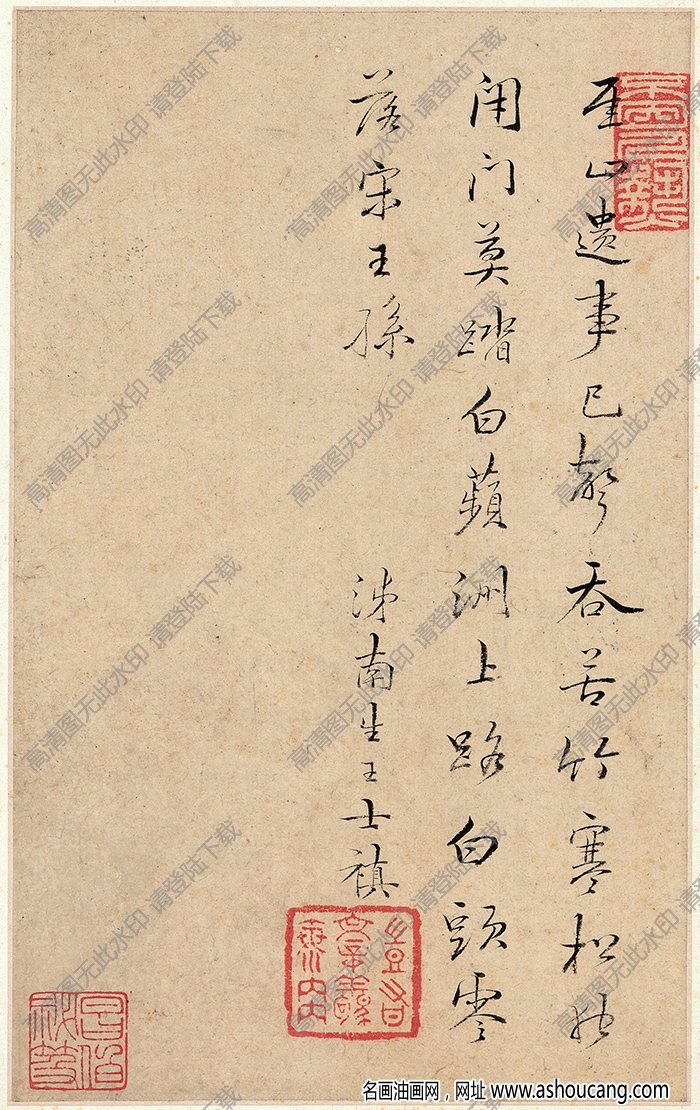 厓山遺事已聲吞苦竹寒松
閉門莫踏白蘋洲上路白頭零
落宋王孫
泲南生王士禛
高清图无此水印 请登陆下载
名画油画网，网址 www.ashoucang.com